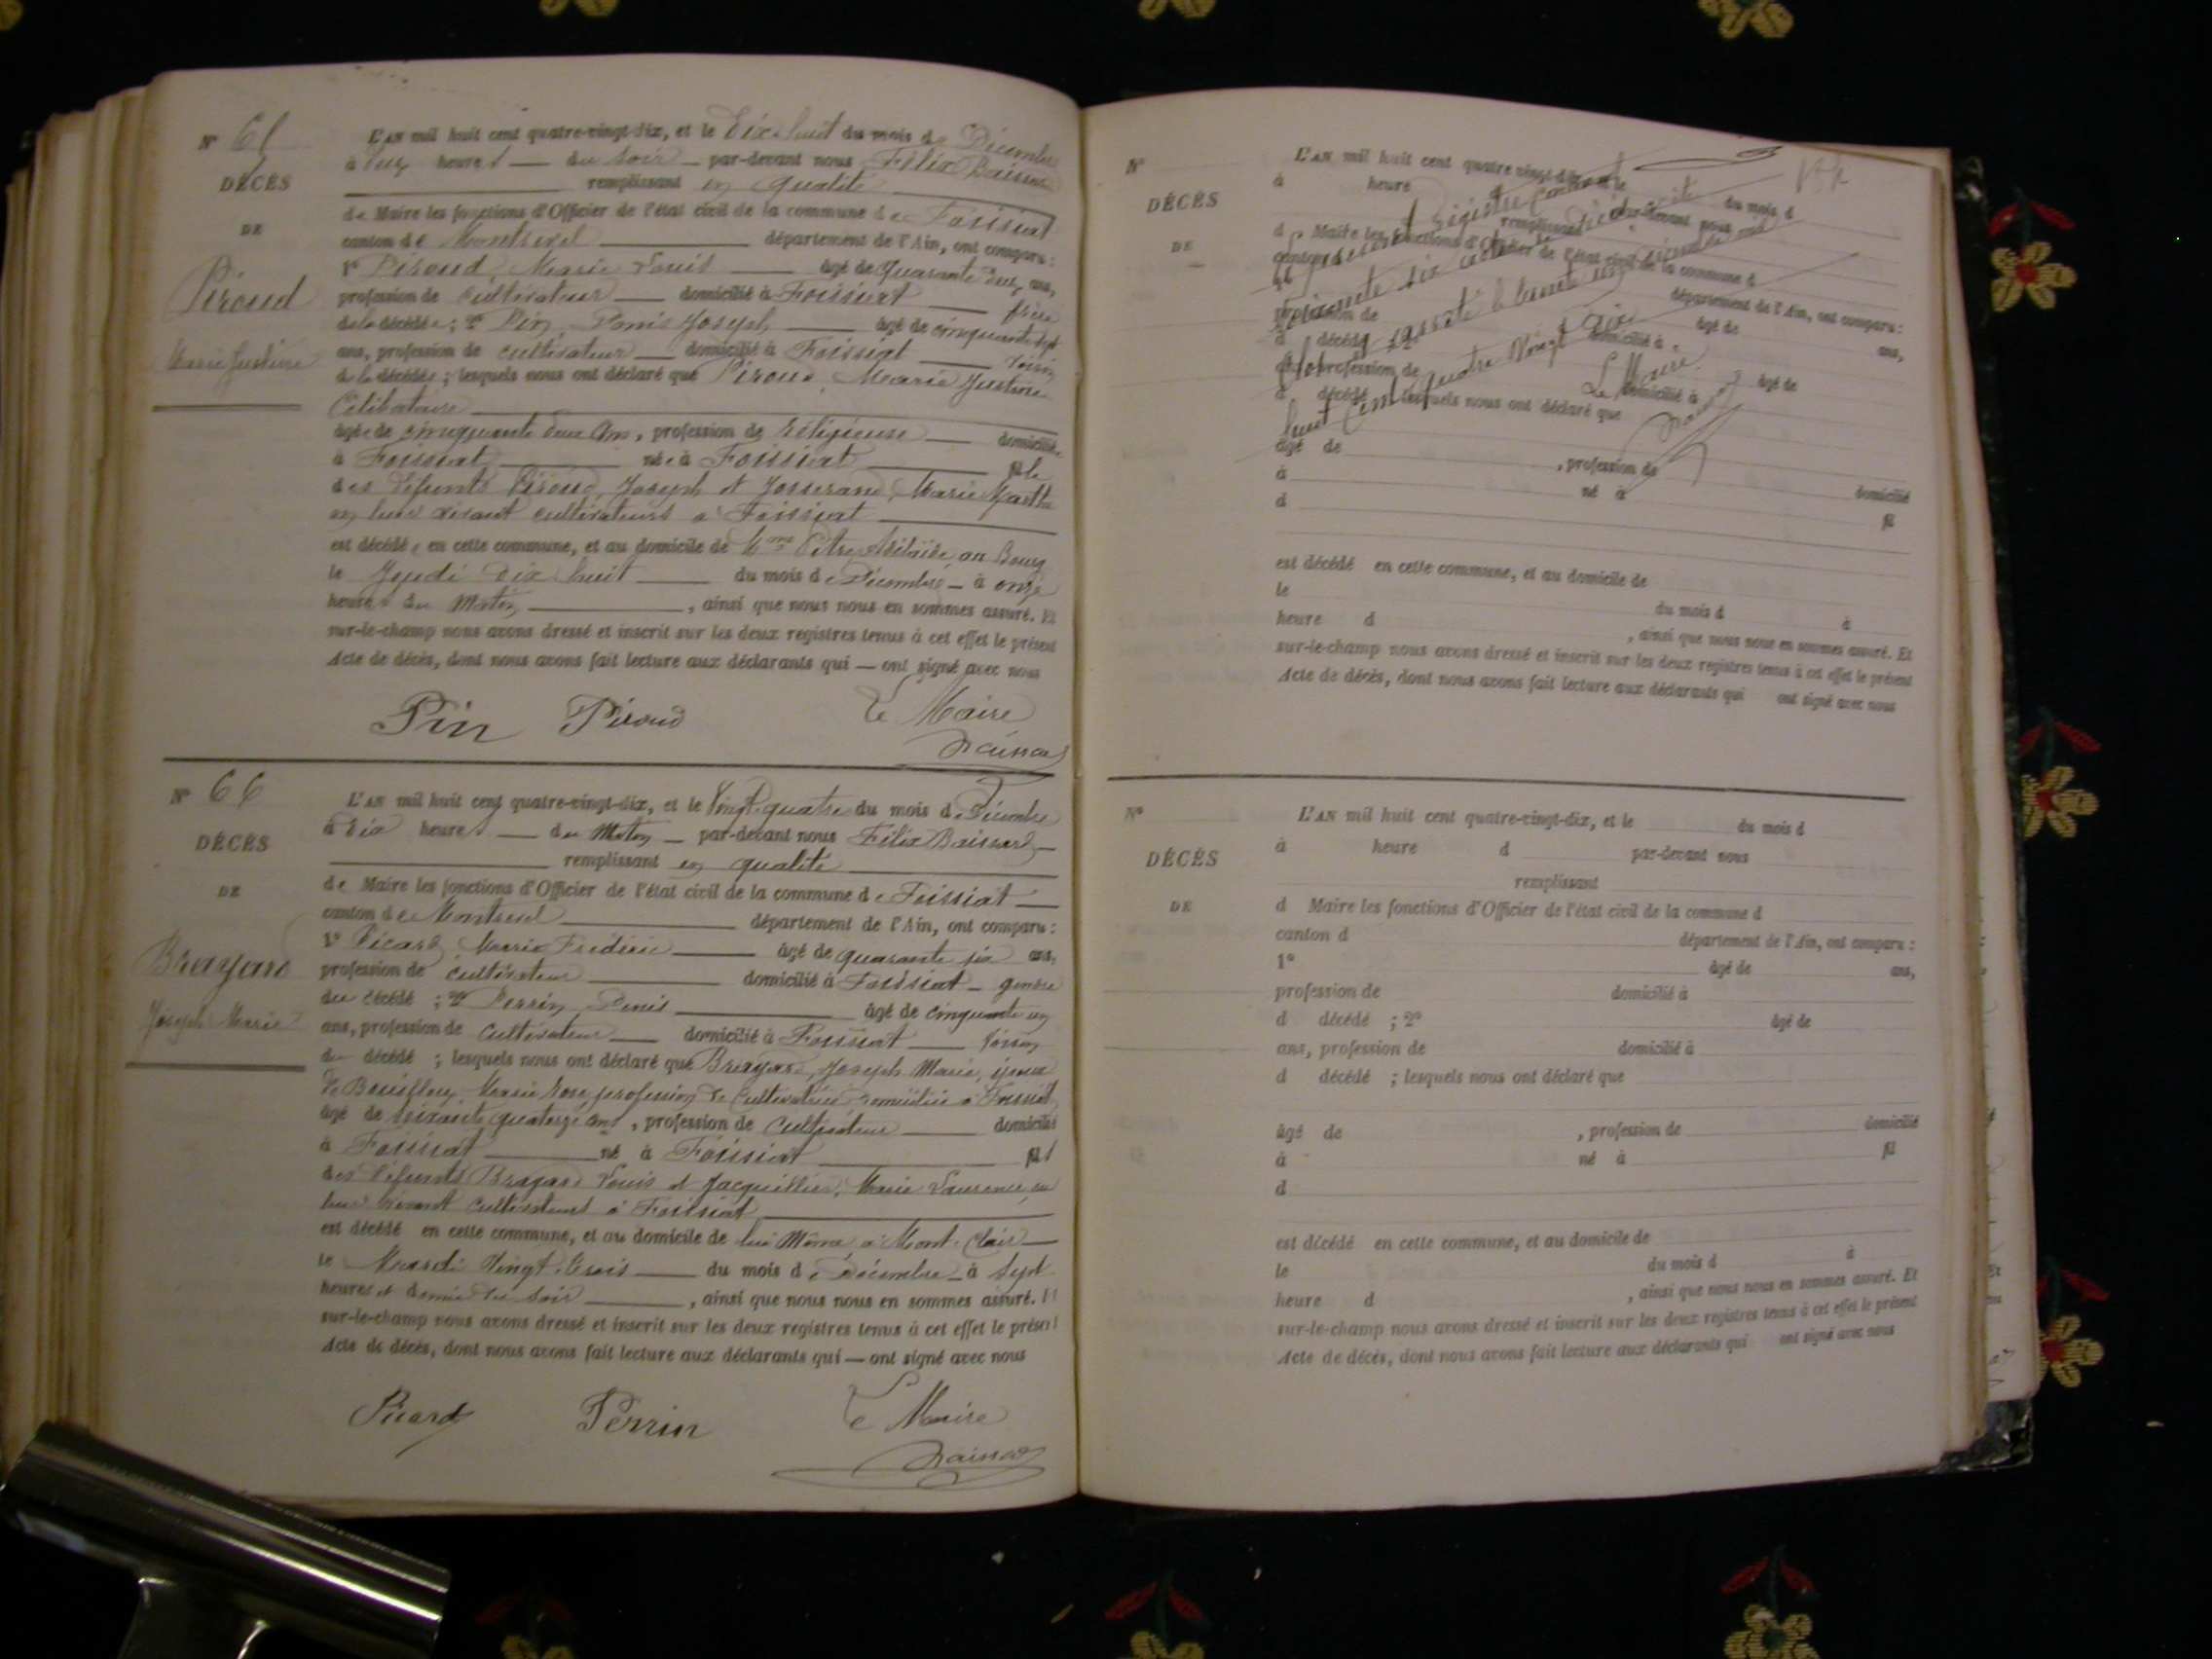 N° 61
DÉCÈS
DE
Piroud
Marie Justine
L'AN mil huit cent quatre-vingt-dix, et le Dix huit du mois de Décembre
à heures du soir par-devant nous Félix
remplissant en qualité
de Maire les fonctions d'Officier de l'état civil de la commune de Foissiat
canton de Montrevel département de l'Ain, ont comparu :
1° Piroud, Marie Louis âgé de quarante deux ans,
profession de cultivateur domicilié à Foissiat frère
de la décédée ; 2° Pin, Denis Joseph âgé de cinquante sept
ans, profession de cultivateur domicilié à Foissiat voisin
de la décédée ; lesquels nous ont déclaré que Piroud, Marie Justine
Célibataire
âgée de cinquante deux ans, profession de religieuse domiciliée
à Foissiat née à Foissiat fille
des défunts Piroud, Joseph et Josserand, Marie Marthe
en leur vivant cultivateurs à Foissiat
est décédée en cette commune, et au domicile de Mme Adélaïde, au Bourg
le Jeudi dix huit du mois de Décembre à onze
heures du Matin, ainsi que nous nous en sommes assuré. Et
sur-le-champ nous avons dressé et inscrit sur les deux registres tenus à cet effet le présent
Acte de décès, dont nous avons fait lecture aux déclarants qui — ont signé avec nous
Pin Piroud Le Maire
N° 66
DÉCÈS
DE
Brayard
Joseph Marie
L'AN mil huit cent quatre-vingt-dix, et le Vingt quatre du mois de Décembre
à dix heures du Matin par-devant nous Félix
remplissant en qualité
de Maire les fonctions d'Officier de l'état civil de la commune de Foissiat
canton de Montrevel département de l'Ain, ont comparu :
1° Picard, Marie Frédéric âgé de quarante six ans,
profession de cultivateur domicilié à Foissiat gendre
du décédé ; 2° Perrin, Denis âgé de cinquante un
ans, profession de cultivateur domicilié à Foissiat voisin
du décédé ; lesquels nous ont déclaré que Brayard, Joseph Marie, époux
de Marie Rose, profession de Cultivatrice domiciliée à Foissiat
âgé de soixante quatorze ans, profession de cultivateur domicilié
à Foissiat né à Foissiat fils
des défunts Brayard Louis et Marie Laurence, en
leur vivant cultivateurs à Foissiat
est décédé en cette commune, et au domicile de lui Même, à Mont-Clair
le Mardi Vingt trois du mois de Décembre à sept
heures et demie du soir, ainsi que nous nous en sommes assuré. Et
sur-le-champ nous avons dressé et inscrit sur les deux registres tenus à cet effet le présent
Acte de décès, dont nous avons fait lecture aux déclarants qui — ont signé avec nous
Picard Perrin Le Maire
N°
DÉCÈS
DE
L'AN mil huit cent quatre-vingt-dix, et le du mois d
à heure d par-devant nous
remplissant
d Maire les fonctions d'Officier de l'état civil de la commune d
département de l'Ain, ont comparu :
présent Registre
soixante six actes
âgé de ans,
profession de domicilié à
d décédé
Le Maire
profession de domicilié à âgé de
huit cent quatre Vingt
d décédé lesquels nous ont déclaré que
âgé de , profession de domicilié
à né à fil
d
est décédé en cette commune, et au domicile de
le du mois d à
heure d , ainsi que nous nous en sommes assuré. Et
sur-le-champ nous avons dressé et inscrit sur les deux registres tenus à cet effet le présent
Acte de décès, dont nous avons fait lecture aux déclarants qui ont signé avec nous
N°
DÉCÈS
DE
L'AN mil huit cent quatre-vingt-dix, et le du mois d
à heure d par-devant nous
remplissant
d Maire les fonctions d'Officier de l'état civil de la commune d
canton d département de l'Ain, ont comparu :
1° âgé de ans,
profession de domicilié à
d décédé ; 2° âgé de
ans, profession de domicilié à
d décédé ; lesquels nous ont déclaré que
âgé de , profession de domicilié
à né à fil
d
est décédé en cette commune, et au domicile de
le du mois d à
heure d , ainsi que nous nous en sommes assuré. Et
sur-le-champ nous avons dressé et inscrit sur les deux registres tenus à cet effet le présent
Acte de décès, dont nous avons fait lecture aux déclarants qui ont signé avec nous